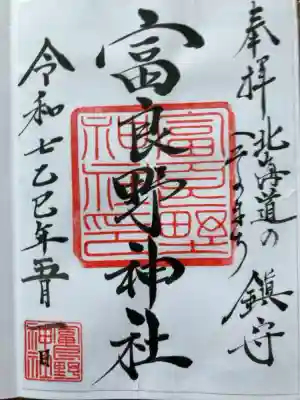 奉拝 北海道の
へそのまち 鎮守
富良野神社
富良野
神社印
令和七乙巳年五月
一日
富良野
神社